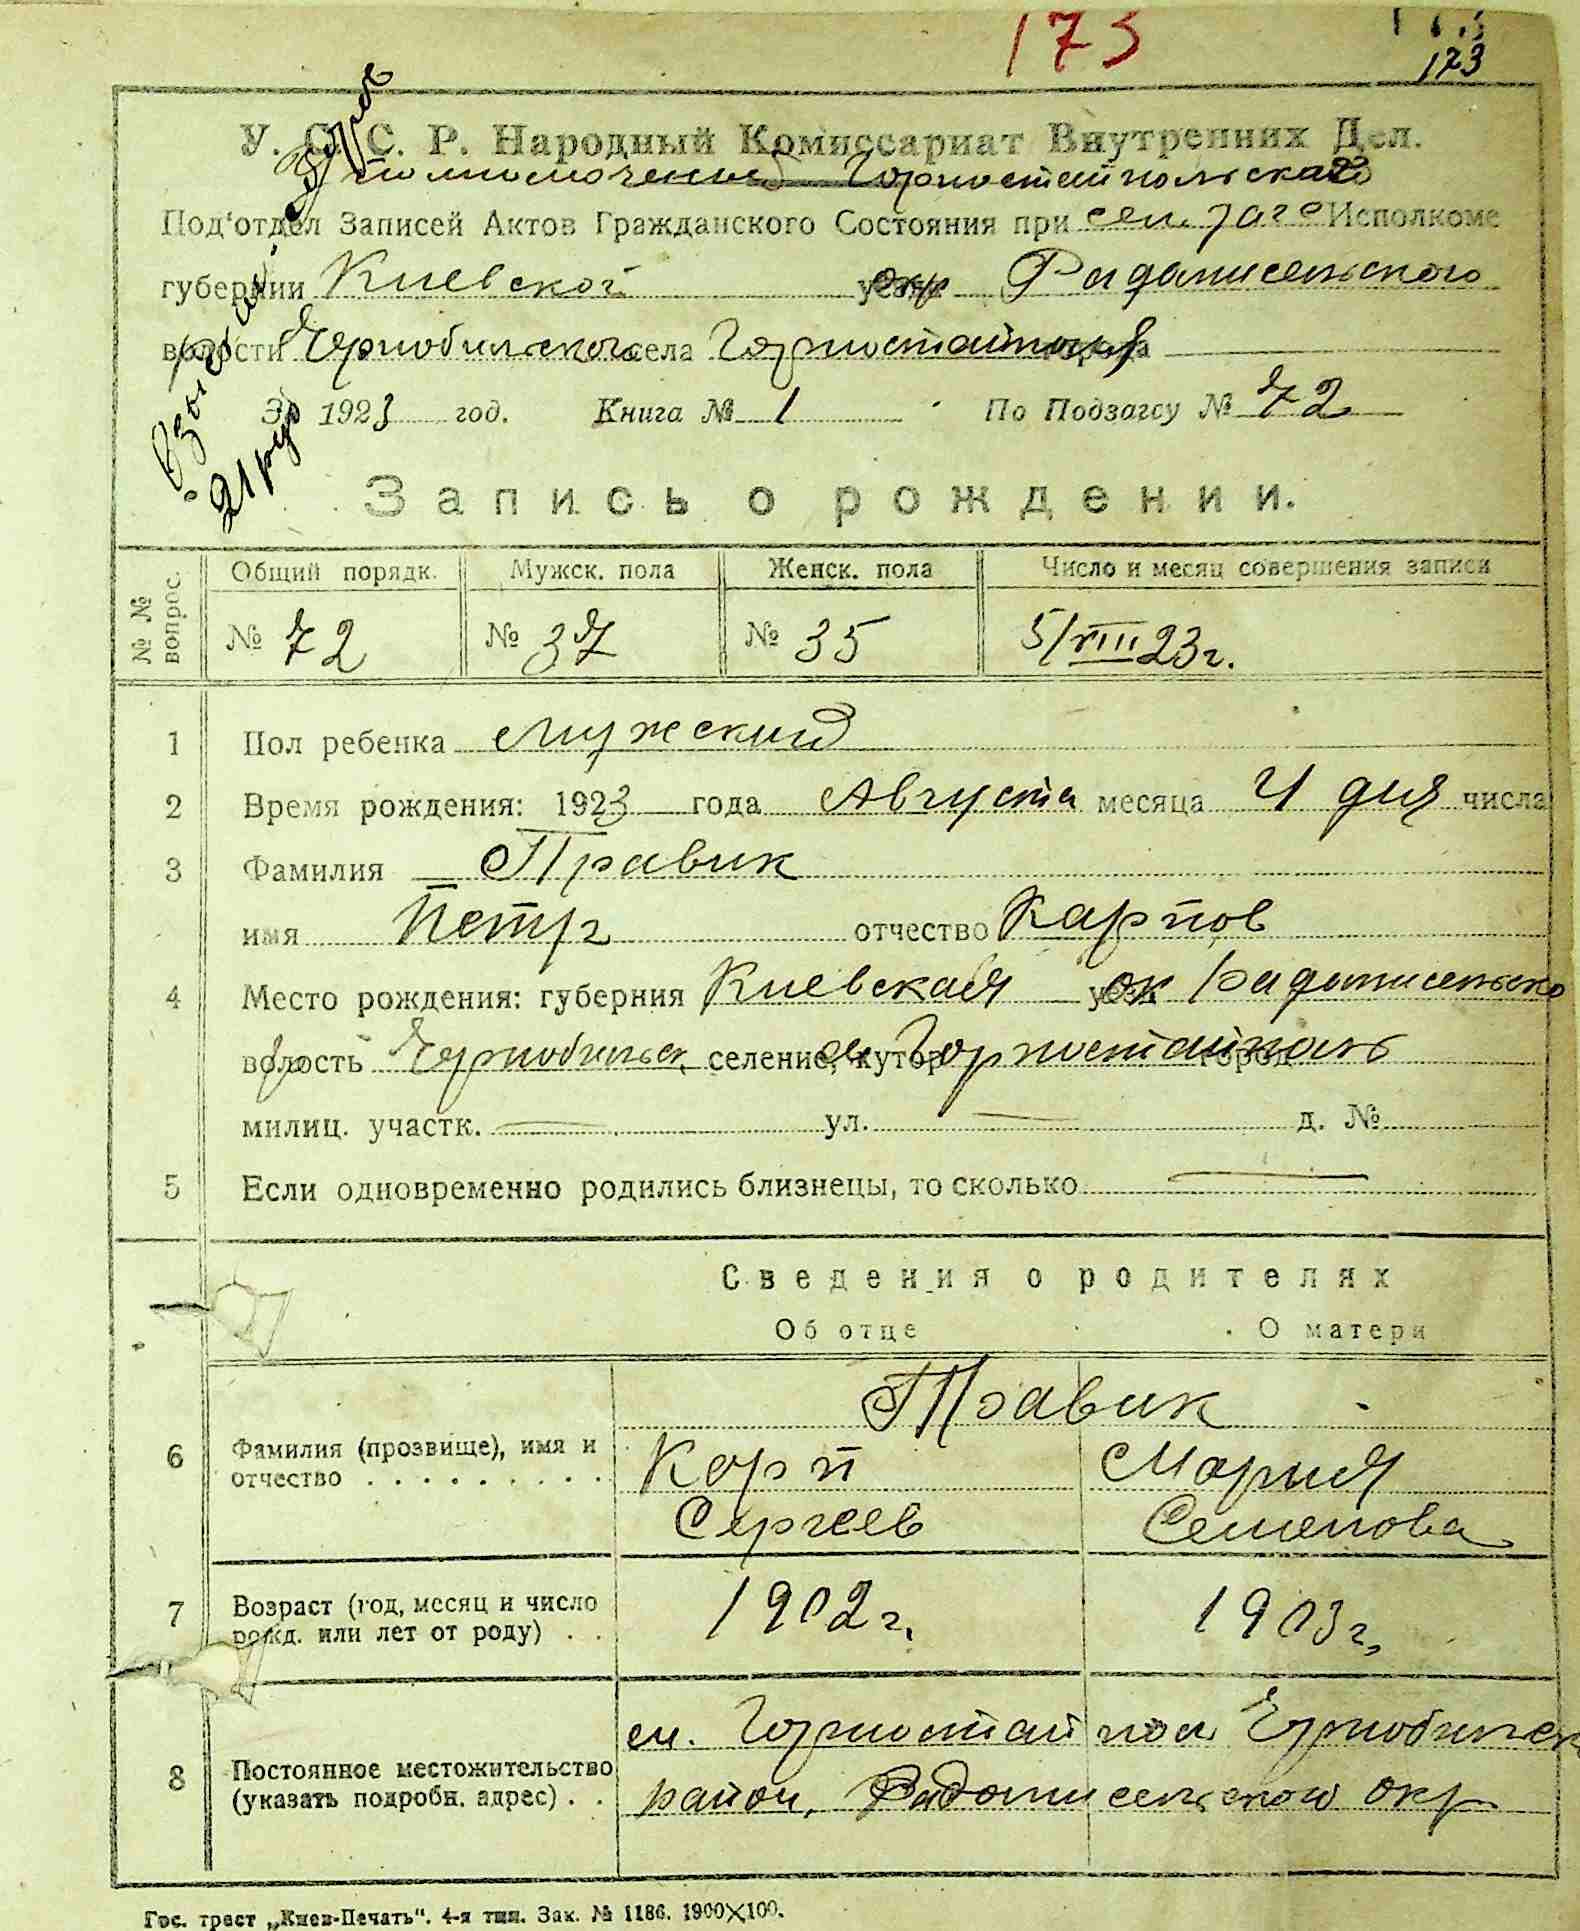 173
173
У. С. С. Р. Народный Комиссариат Внутренних Дел.
Горностайпольская
Под'отдел Записей Актов Гражданского Состояния при Исполкоме
губернии Киевской окр Радомисельского
волости Чорнобильского села Горностайполя
За 1923 год. Книга № 1 По Подзагсу № 72
21 руб
Запись о рождении.
№ № вопрос. Общий порядк. Мужск. пола Женск. пола Число и месяц совершения записи
№ 72 № 37 № 35 5/VIII 23г.
1 Пол ребенка Мужский
2 Время рождения: 1923 года Августа месяца 4 дня числа
3 Фамилия Правик
имя Петр отчество Карпов
4 Место рождения: губерния Киевская уезд ок Радомисельско
волость Чорнобильск. селение, хутор Горностайполь город
милиц. участк. — ул. — д. №
5 Если одновременно родились близнецы, то сколько —
Сведения о родителях
Об отце О матери
Правик
6 Фамилия (прозвище), имя и отчество . . . . . . . . . Карп Мария
Сергеев Семенова
7 Возраст (год, месяц и число рожд. или лет от роду) . . 1902 г. 1903 г.
8 Постоянное местожительство (указать подробн. адрес) . . м. Горностайпол Чорнобильск
район, Радомисельской окр
Гос. трест „Киев-Печать“. 4-я тип. Зак. № 1186. 1900×100.